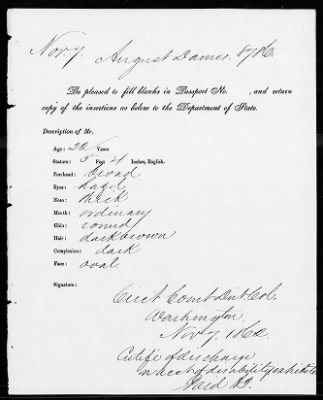 Nov. 7. August Dames.
Be pleased to fill blanks in Passport No. , and return
copy of the insertions as below to the Department of State.
Description of Mr.
Age: 22 Years
Stature: 5 Feet 4 Inches, English.
Forehead: broad
Eyes: hazil
Nose: thick
Mouth: ordinary
Chin: round
Hair: dark brown
Complexion: dark
Face: oval
Signature:
Circt Court Dist. Col.
Washington
Nov 7.
of discharge
on acct of disability exhibited
Paid $3.